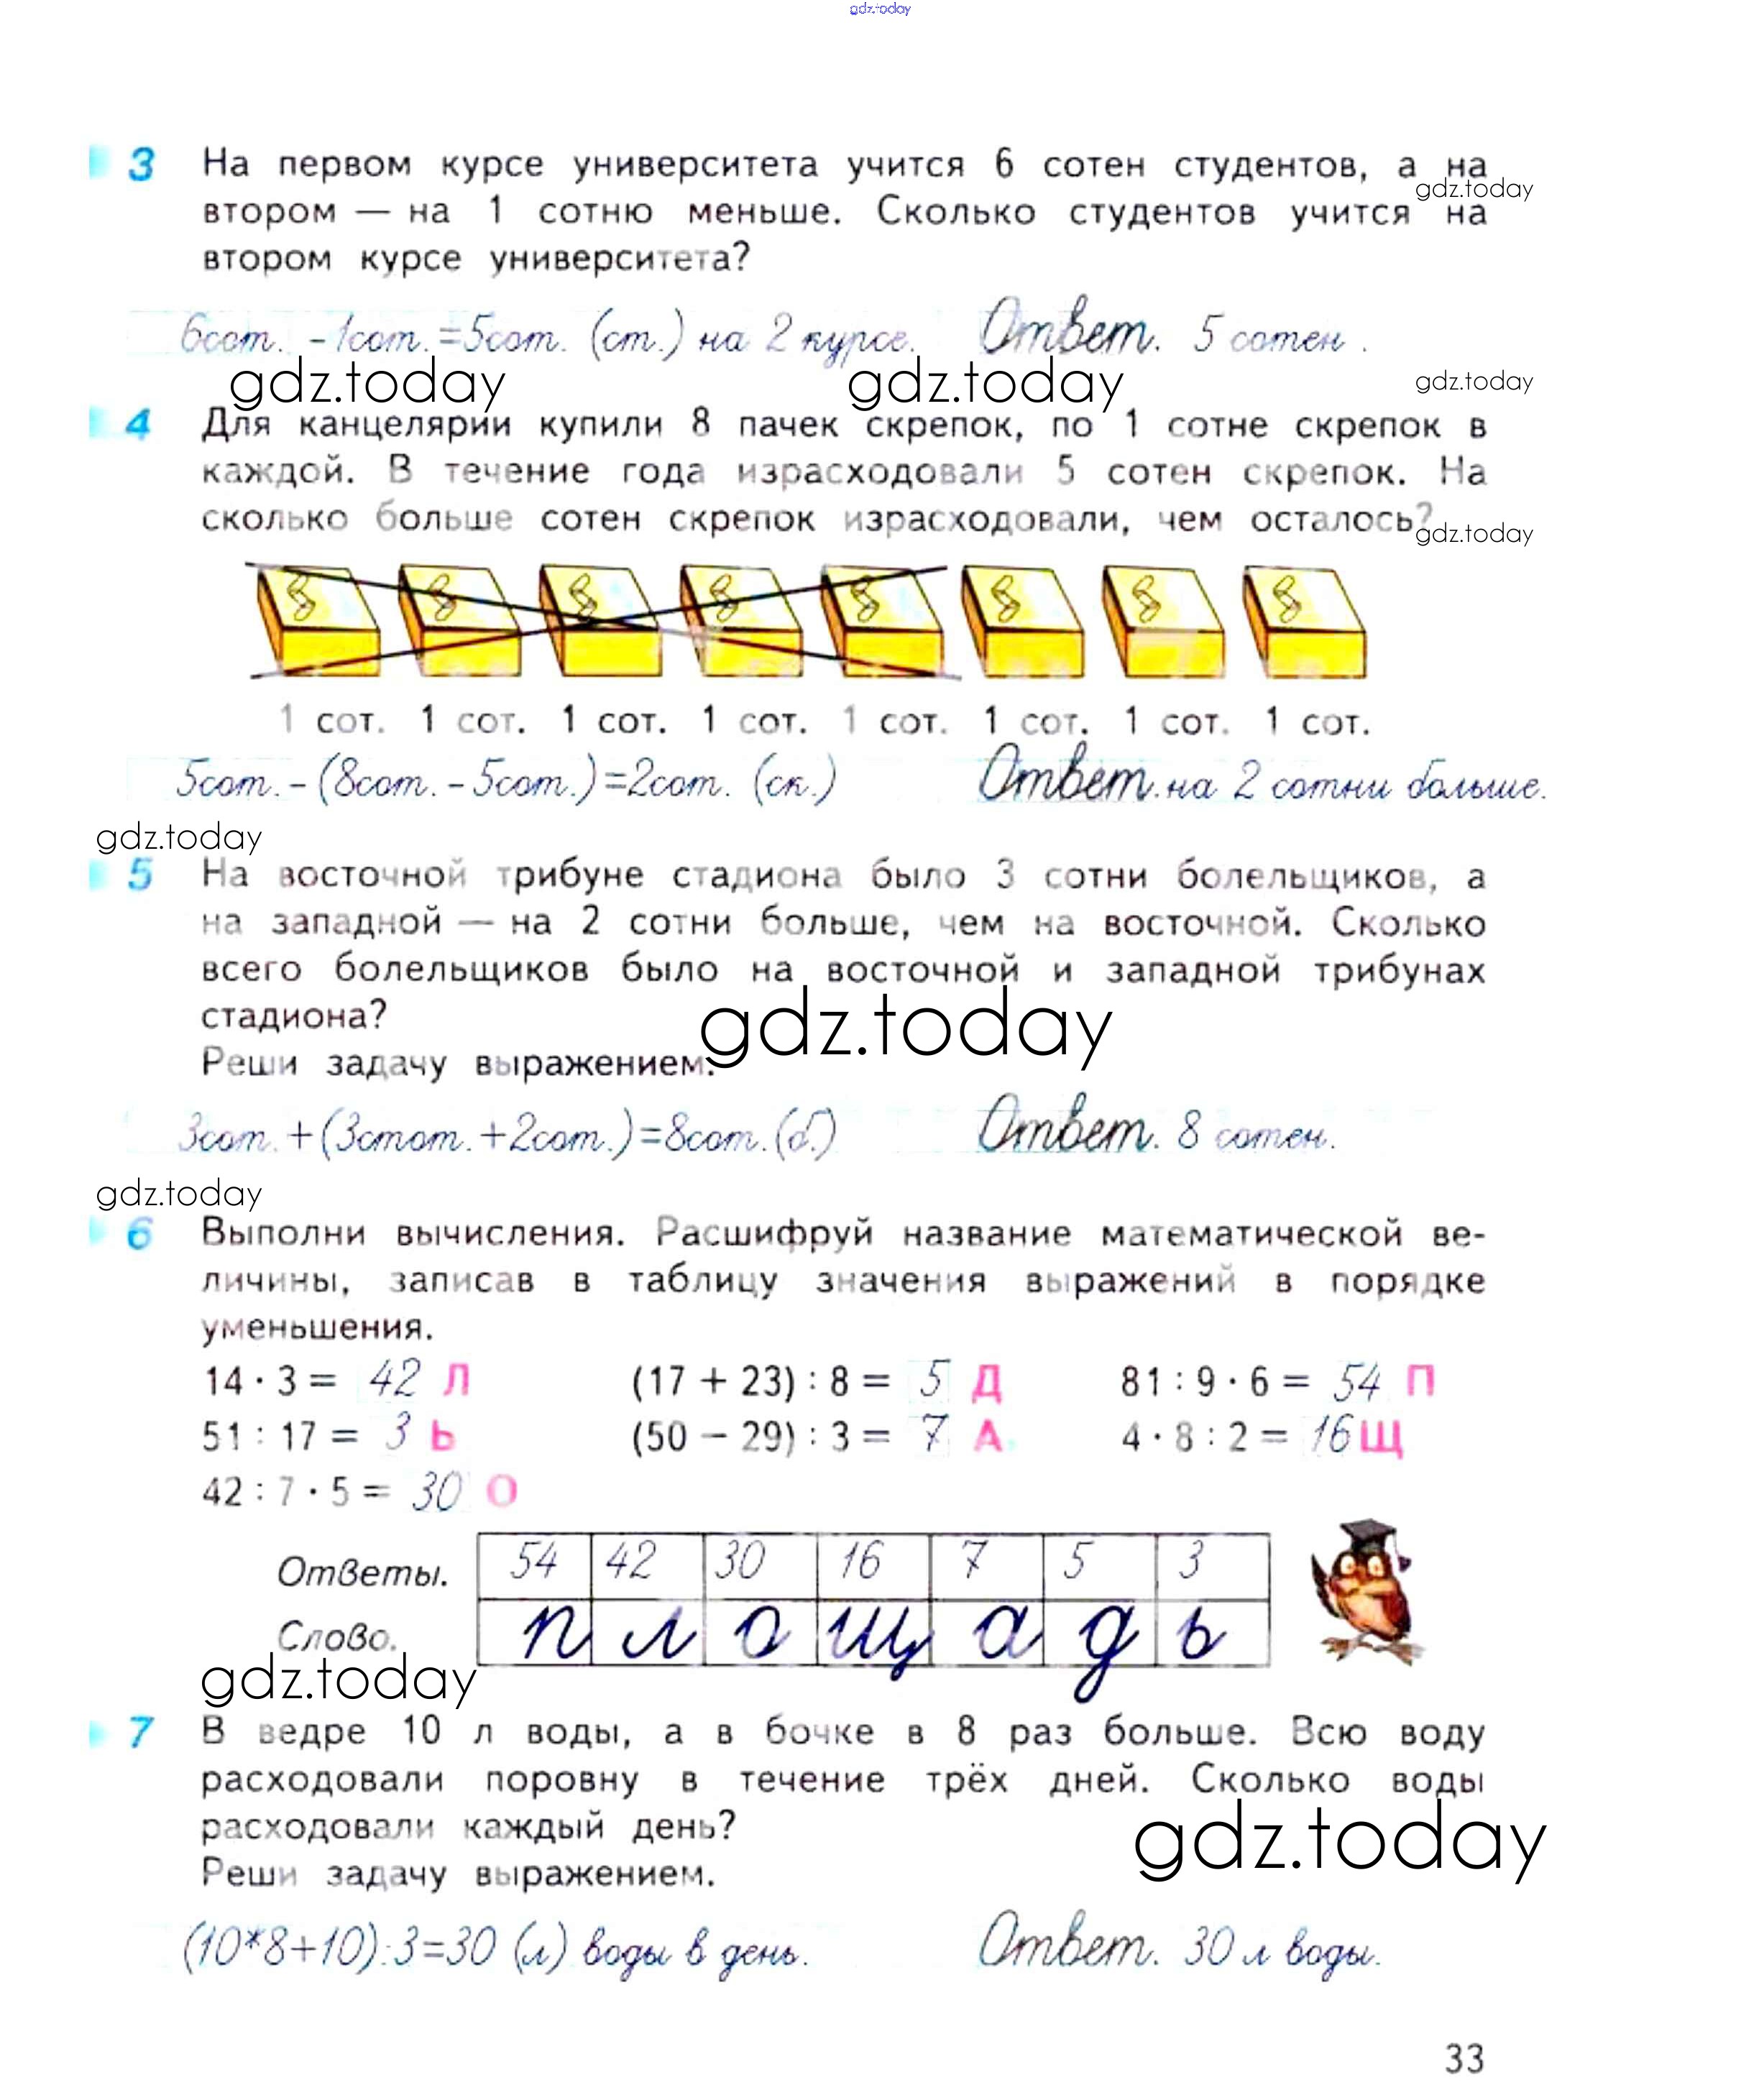 gdz.today
3 На первом курсе университета учится 6 сотен студентов, а на
gdz.today
втором — на 1 сотню меньше. Сколько студентов учится на
втором курсе университета?
6сот. -1сот.=5сот. (ст.) на 2 курсе. Ответ. 5 сотен .
gdz.today gdz.today gdz.today
4 Для канцелярии купили 8 пачек скрепок, по 1 сотне скрепок в
каждой. В течение года израсходовали 5 сотен скрепок. На
сколько больше сотен скрепок израсходовали, чем осталось?
gdz.today
1 сот. 1 сот. 1 сот. 1 сот. 1 сот. 1 сот. 1 сот. 1 сот.
5сот.-(8сот.-5сот.)=2сот. (ск.) Ответ.на 2 сотни больше.
gdz.today
5 На восточной трибуне стадиона было 3 сотни болельщиков, а
на западной — на 2 сотни больше, чем на восточной. Сколько
всего болельщиков было на восточной и западной трибунах
стадиона?
gdz.today
Реши задачу выражением.
3сот.+(3стот.+2сот.)=8сот.(б.) Ответ. 8 сотен.
gdz.today
6 Выполни вычисления. Расшифруй название математической ве-
личины, записав в таблицу значения выражений в порядке
уменьшения.
14 · 3 = 42 Л (17 + 23) : 8 = 5 Д 81 : 9 · 6 = 54 П
51 : 17 = 3 Ь (50 − 29) : 3 = 7 А 4 · 8 : 2 = 16 Щ
42 : 7 · 5 = 30 О
Ответы. 54 42 30 16 7 5 3
Слово. п л о щ а д ь
gdz.today
7 В ведре 10 л воды, а в бочке в 8 раз больше. Всю воду
расходовали поровну в течение трёх дней. Сколько воды
расходовали каждый день?
gdz.today
Реши задачу выражением.
(10*8+10):3=30 (л) воды в день. Ответ. 30 л воды.
33